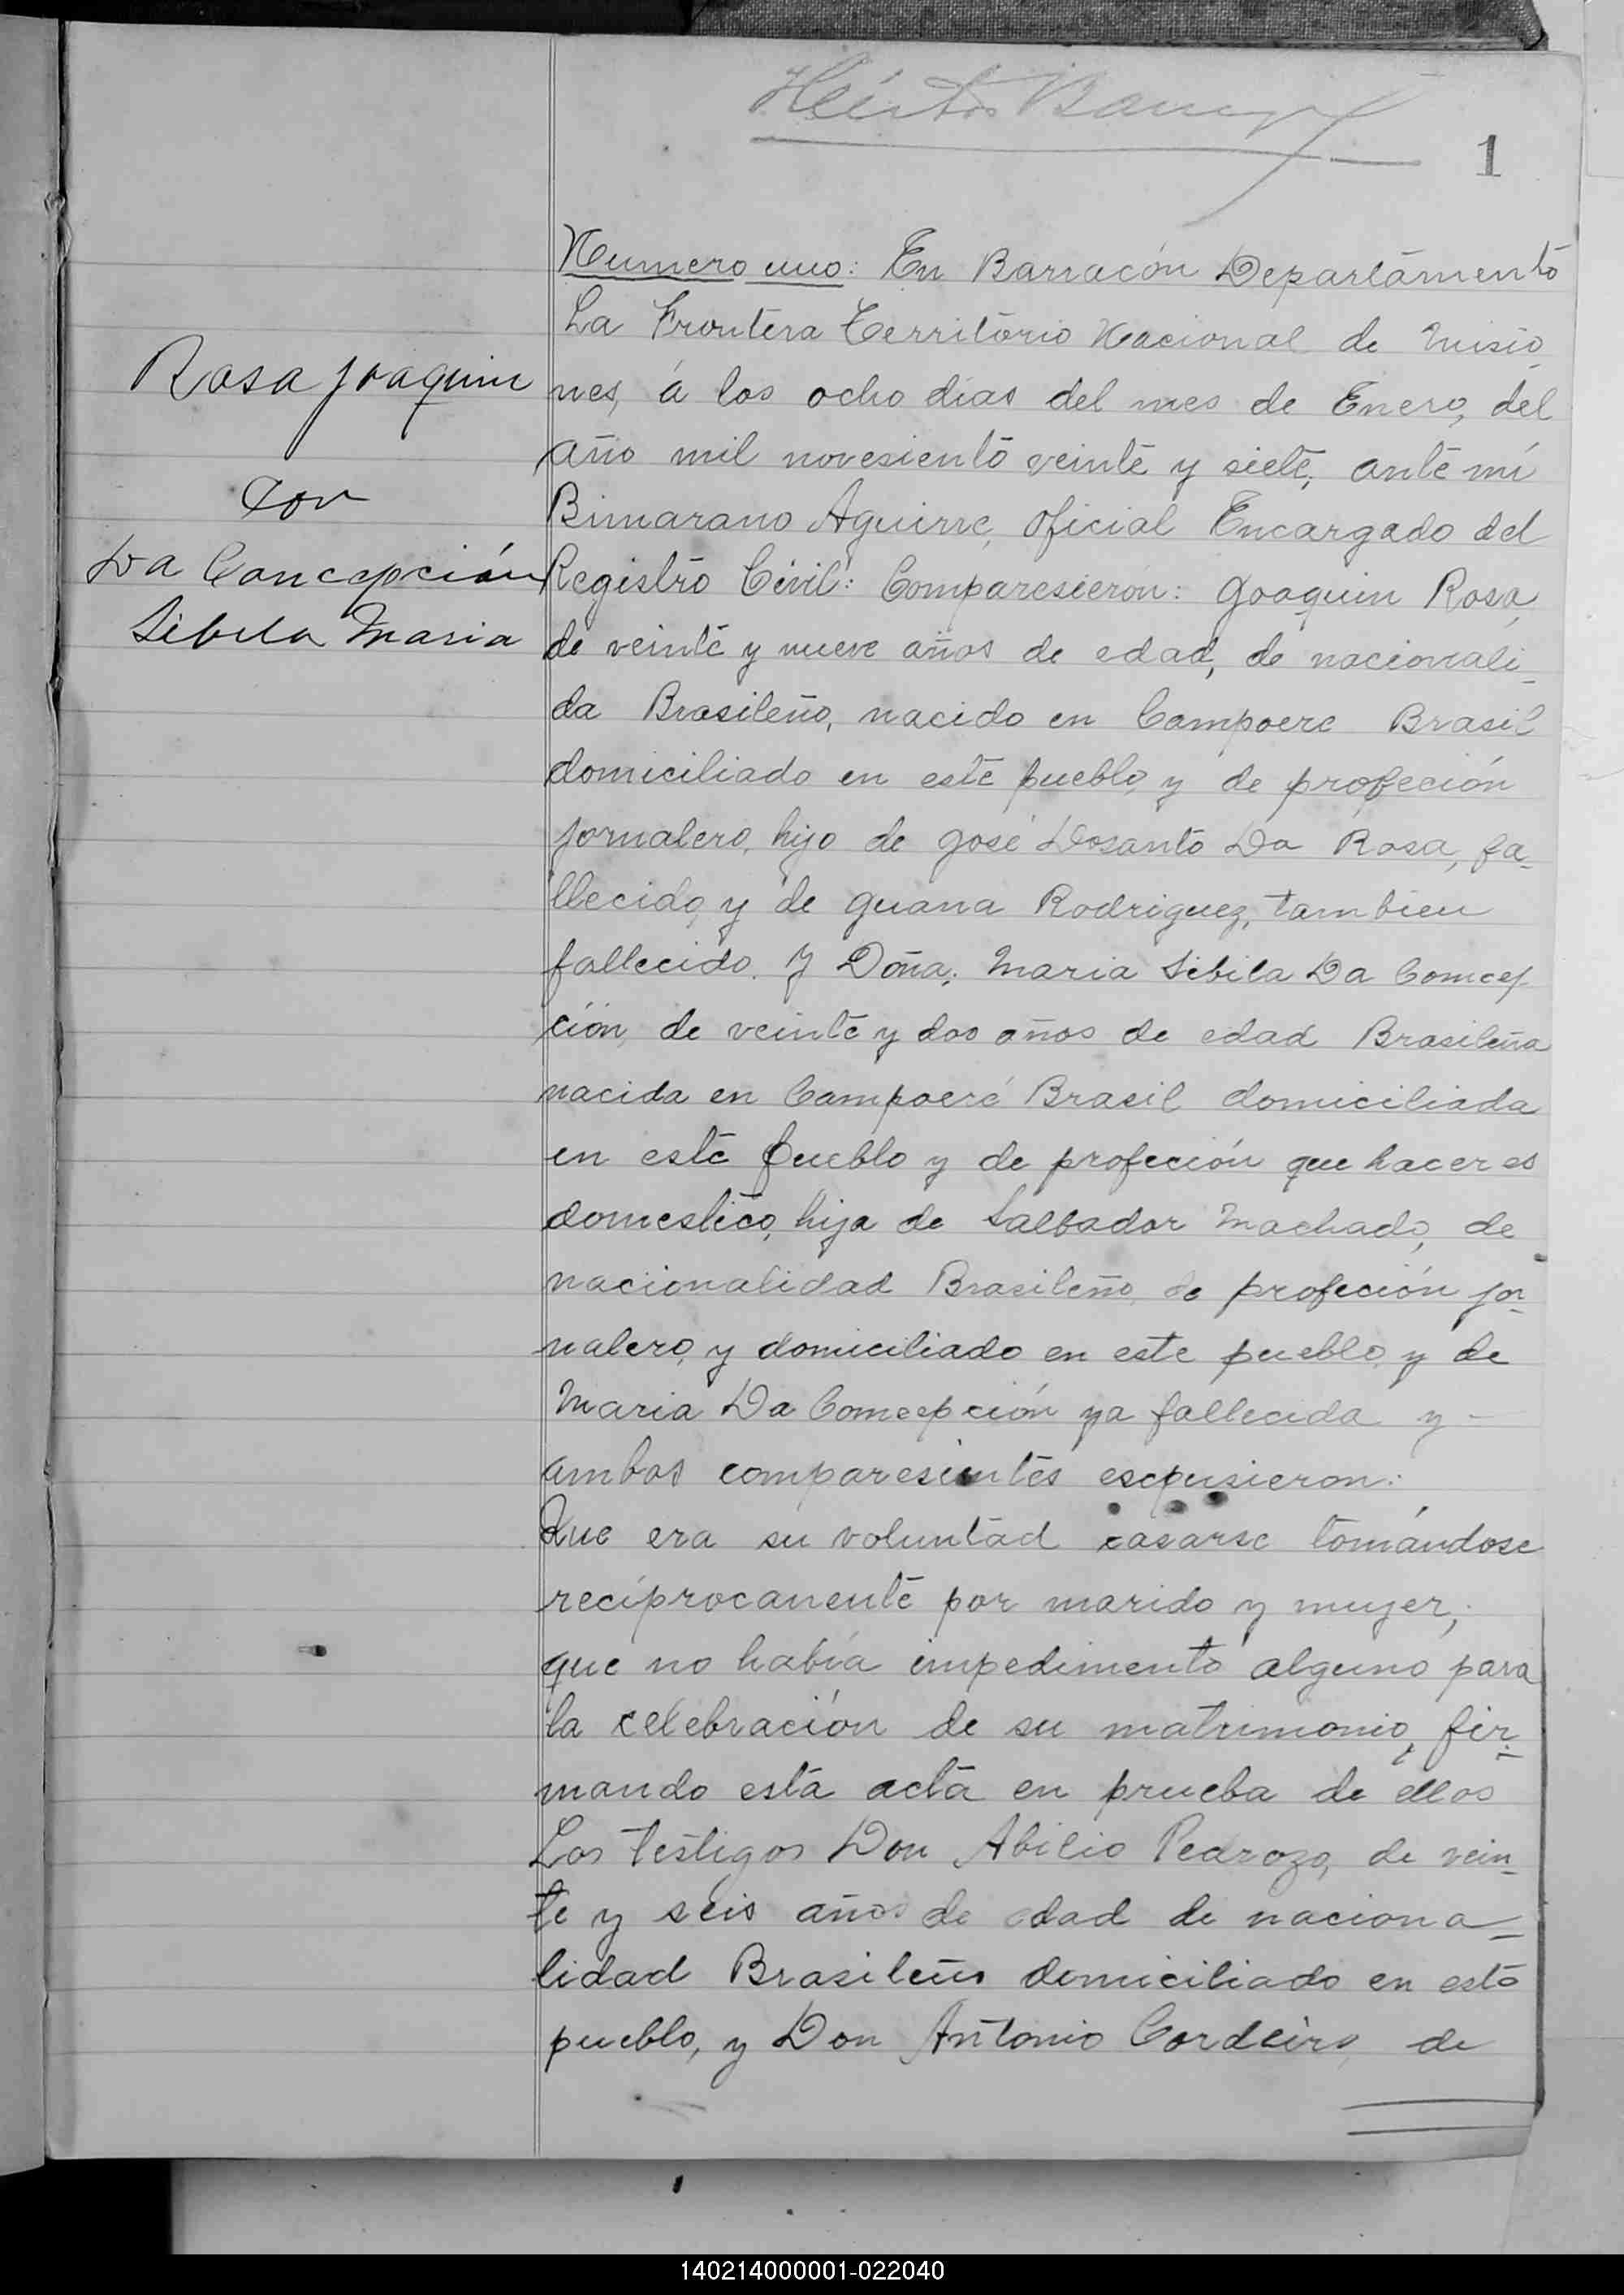 1
Rosa Joaquin
Con
Da Concepción
Sibila Maria
Numero uno: En Barracón Departamento
La Frontera Territorio Nacional de Misio
nes, á los ocho dias del mes de Enero, del
año mil novesiento veinte y siete, ante mí
Aguirre, Oficial Encargado del
Registro Civil: Comparesieron: Joaquin Rosa,
de veinte y nueve años de edad, de nacionali_
da Brasileño, nacido en Campoere Brasil
domiciliado en este pueblo, y de profeción
jornalero, hijo de José Dosanto Da Rosa, fa_
llecido, y de Juana Rodriguez, tambien
fallecido. Y Doña; Maria Sibila Da Comcep
ción, de veinte y dos años de edad Brasileña
nacida en Campoeré Brasil domiciliada
en este pueblo y de profeción que haceres
domestico, hija de Salbador Machado, de
nacionalidad Brasileño, de profeción jor_
nalero, y domiciliado en este pueblo, y de
Maria Da Comcepción ya fallecida y -
ambos comparesientes escpusieron:
Que era su voluntad casarse tomándose
recíprocanente por marido y mujer,
que no había impedimento alguno para
la celebración de su matrimonio, fir_
mando esta acta en prueba de ellos
Los testigos Don Abilio Pedrozo, de vein_
te y seis años de edad de naciona_
lidad Brasileño domiciliado en este
pueblo, y Don Antonio Cordeiro, de
140214000001-022040